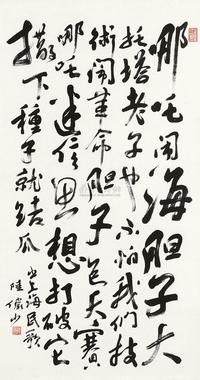 哪吒闹海胆子大
托塔老子也不怕我们技
術闹革命胆子包天賽
哪吒迷信思想打破它
撒下種子就结瓜
上海民歌
陸儼少